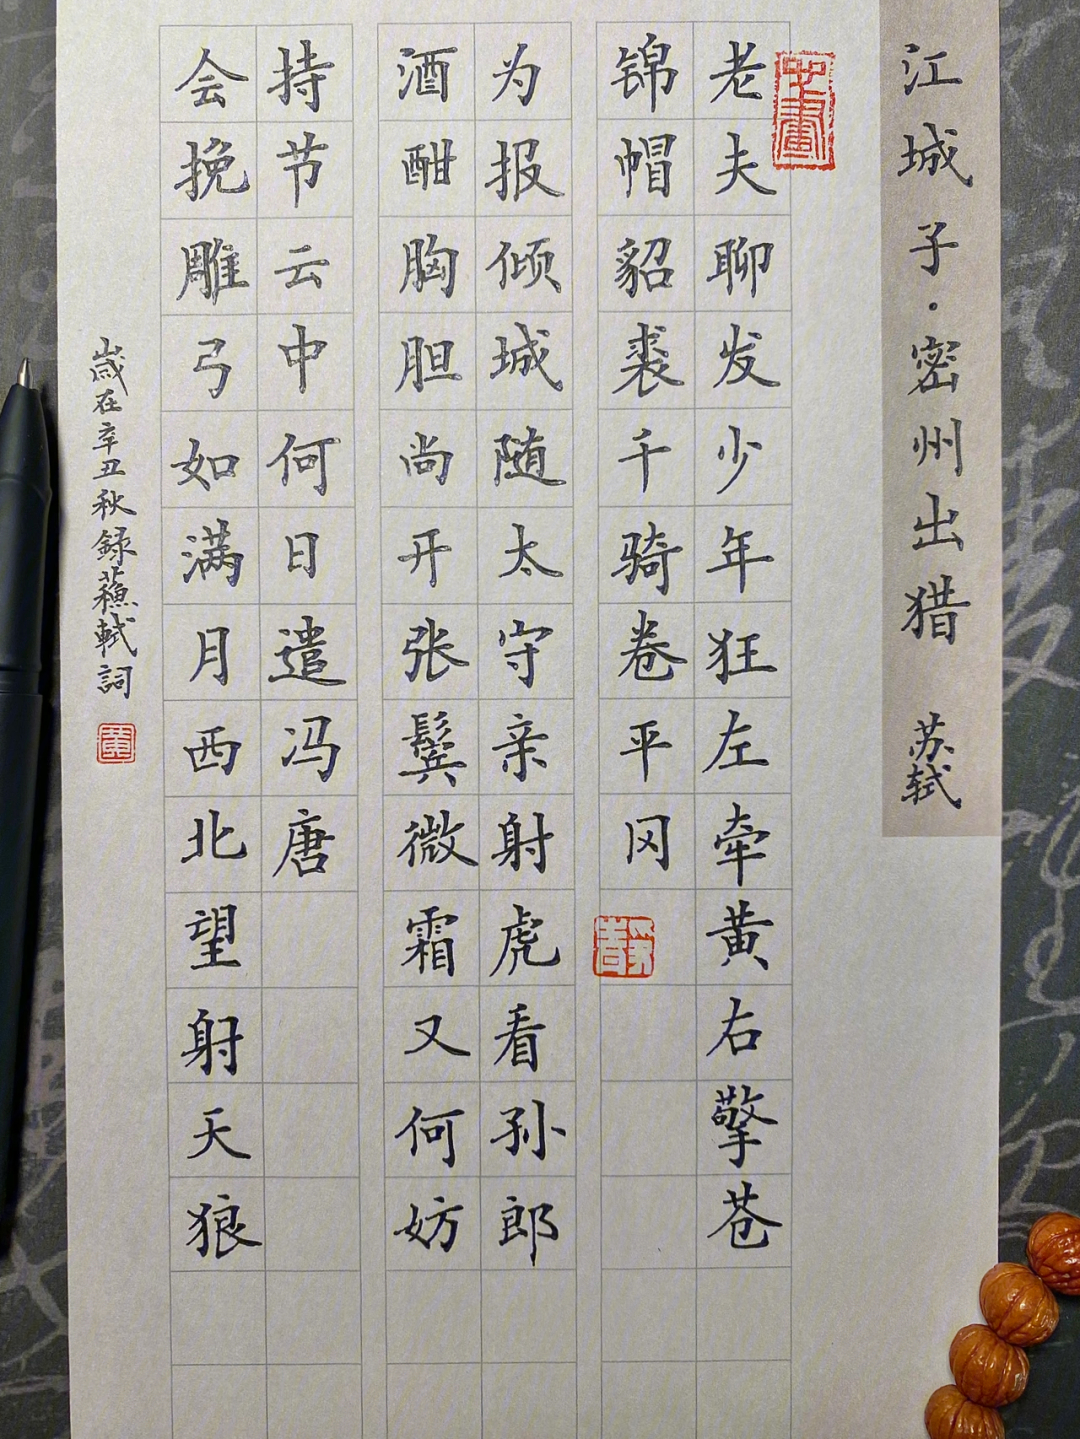 江城子·密州出猎 苏轼
老夫聊发少年狂左牵黄右擎苍
锦帽貂裘千骑卷平冈
为报倾城随太守亲射虎看孙郎
酒酣胸胆尚开张鬓微霜又何妨
持节云中何日遣冯唐
会挽雕弓如满月西北望射天狼
歲在辛丑秋録蘇軾詞